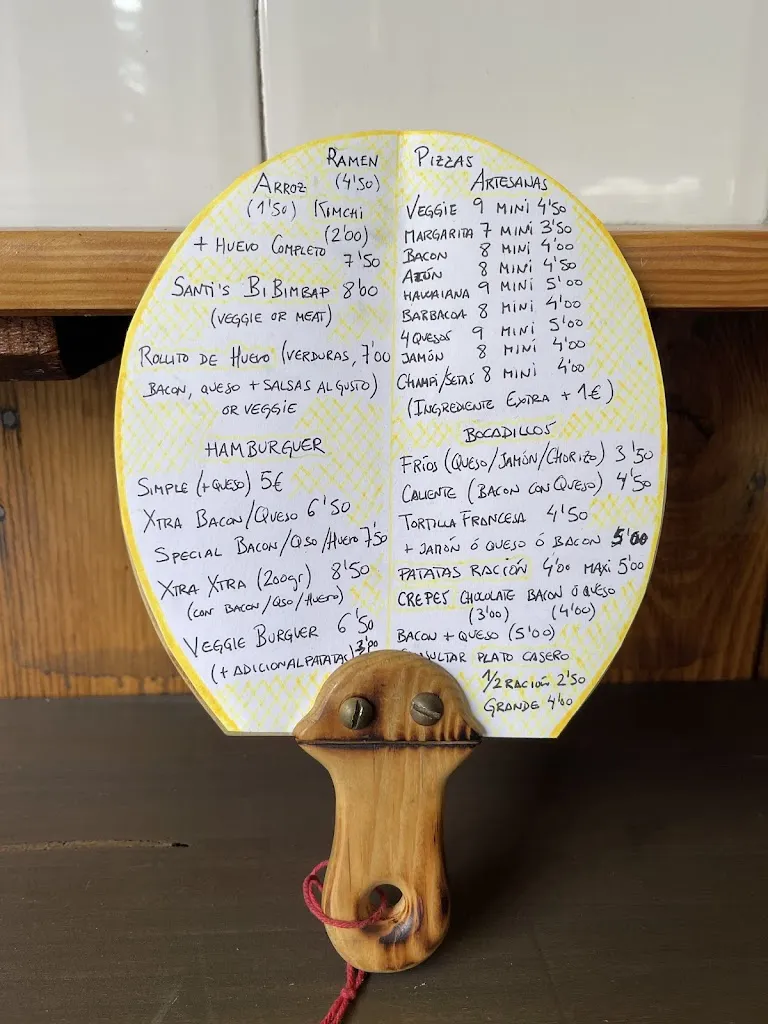 RAMEN
ARROZ (4'50)
(1'50) KIMCHI
(2'00)
+ HUEVO COMPLETO
7'50
SANTI'S BIBIMBAP 8'00
(VEGGIE OR MEAT)
ROLLITO DE HUEVO (VERDURAS, 7'00
BACON, QUESO + SALSAS AL GUSTO)
OR VEGGIE
HAMBURGUER
SIMPLE (+QUESO) 5€
XTRA BACON/QUESO 6'50
SPECIAL BACON/QSO/HUEVO 7'50
XTRA XTRA (200gr) 8'50
(CON BACON/QSO/HUEVO)
VEGGIE BURGUER 6'50
(+ ADICIONAL PATATAS) 3'00
PIZZAS
ARTESANAS
VEGGIE 9 MINI 4'50
MARGARITA 7 MINI 3'50
BACON 8 MINI 4'00
ATÚN 8 MINI 4'50
HAWAIANA 9 MINI 5'00
BARBACOA 8 MINI 4'00
4 QUESOS 9 MINI 5'00
JAMÓN 8 MINI 4'00
CHAMPI/SETAS 8 MINI 4'00
(INGREDIENTE EXTRA + 1€)
BOCADILLOS
FRÍOS (QUESO/JAMÓN/CHORIZO) 3'50
CALIENTE (BACON CON QUESO) 4'50
TORTILLA FRANCESA 4'50
+ JAMÓN Ó QUESO Ó BACON 5'00
PATATAS RACIÓN 4'00 MAXI 5'00
CREPES CHOCOLATE BACON Ó QUESO
(3'00) (4'00)
BACON + QUESO (5'00)
PLATO CASERO
1/2 RACIÓN 2'50
GRANDE 4'00